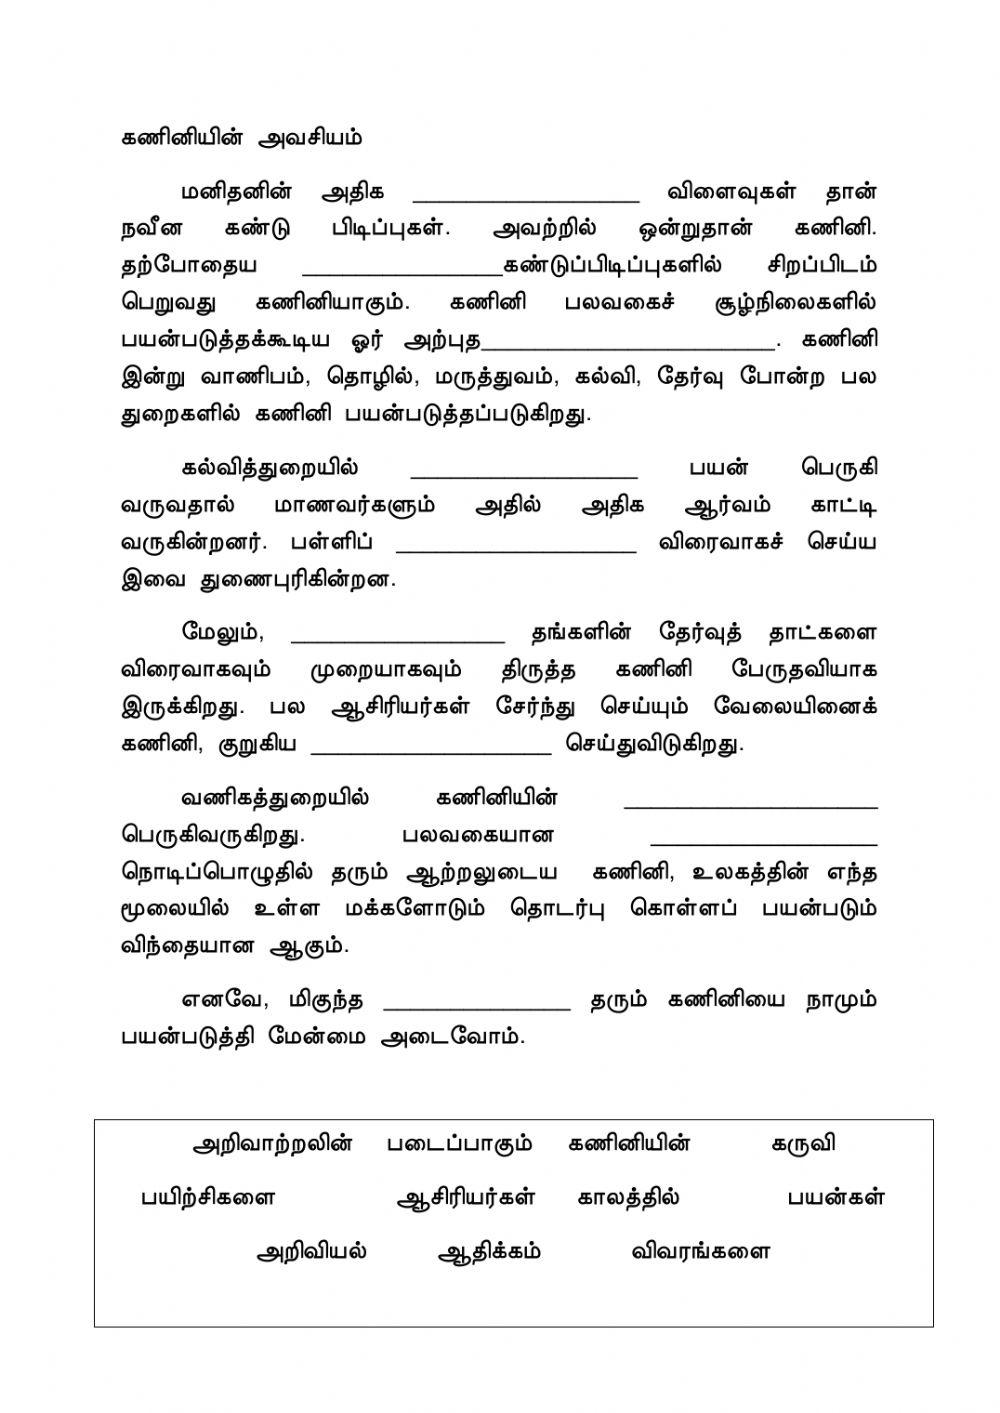 கணினியின் அவசியம்
மனிதனின் அதிக _________________ விளைவுகள் தான்
நவீன கண்டு பிடிப்புகள். அவற்றில் ஒன்றுதான் கணினி.
தற்போதைய _______________கண்டுப்பிடிப்புகளில் சிறப்பிடம்
பெறுவது கணினியாகும். கணினி பலவகைச் சூழ்நிலைகளில்
பயன்படுத்தக்கூடிய ஓர் அற்புத______________________. கணினி
இன்று வாணிபம், தொழில், மருத்துவம், கல்வி, தேர்வு போன்ற பல
துறைகளில் கணினி பயன்படுத்தப்படுகிறது.
கல்வித்துறையில் _________________ பயன் பெருகி
வருவதால் மாணவர்களும் அதில் அதிக ஆர்வம் காட்டி
வருகின்றனர். பள்ளிப் __________________ விரைவாகச் செய்ய
இவை துணைபுரிகின்றன.
மேலும், ________________ தங்களின் தேர்வுத் தாட்களை
விரைவாகவும் முறையாகவும் திருத்த கணினி பேருதவியாக
இருக்கிறது. பல ஆசிரியர்கள் சேர்ந்து செய்யும் வேலையினைக்
கணினி, குறுகிய __________________ செய்துவிடுகிறது.
வணிகத்துறையில் கணினியின் ___________________
பெருகிவருகிறது. பலவகையான _________________
நொடிப்பொழுதில் தரும் ஆற்றலுடைய கணினி, உலகத்தின் எந்த
மூலையில் உள்ள மக்களோடும் தொடர்பு கொள்ளப் பயன்படும்
விந்தையான ஆகும்.
எனவே, மிகுந்த ______________ தரும் கணினியை நாமும்
பயன்படுத்தி மேன்மை அடைவோம்.
அறிவாற்றலின் படைப்பாகும் கணினியின் கருவி
பயிற்சிகளை ஆசிரியர்கள் காலத்தில் பயன்கள்
அறிவியல் ஆதிக்கம் விவரங்களை